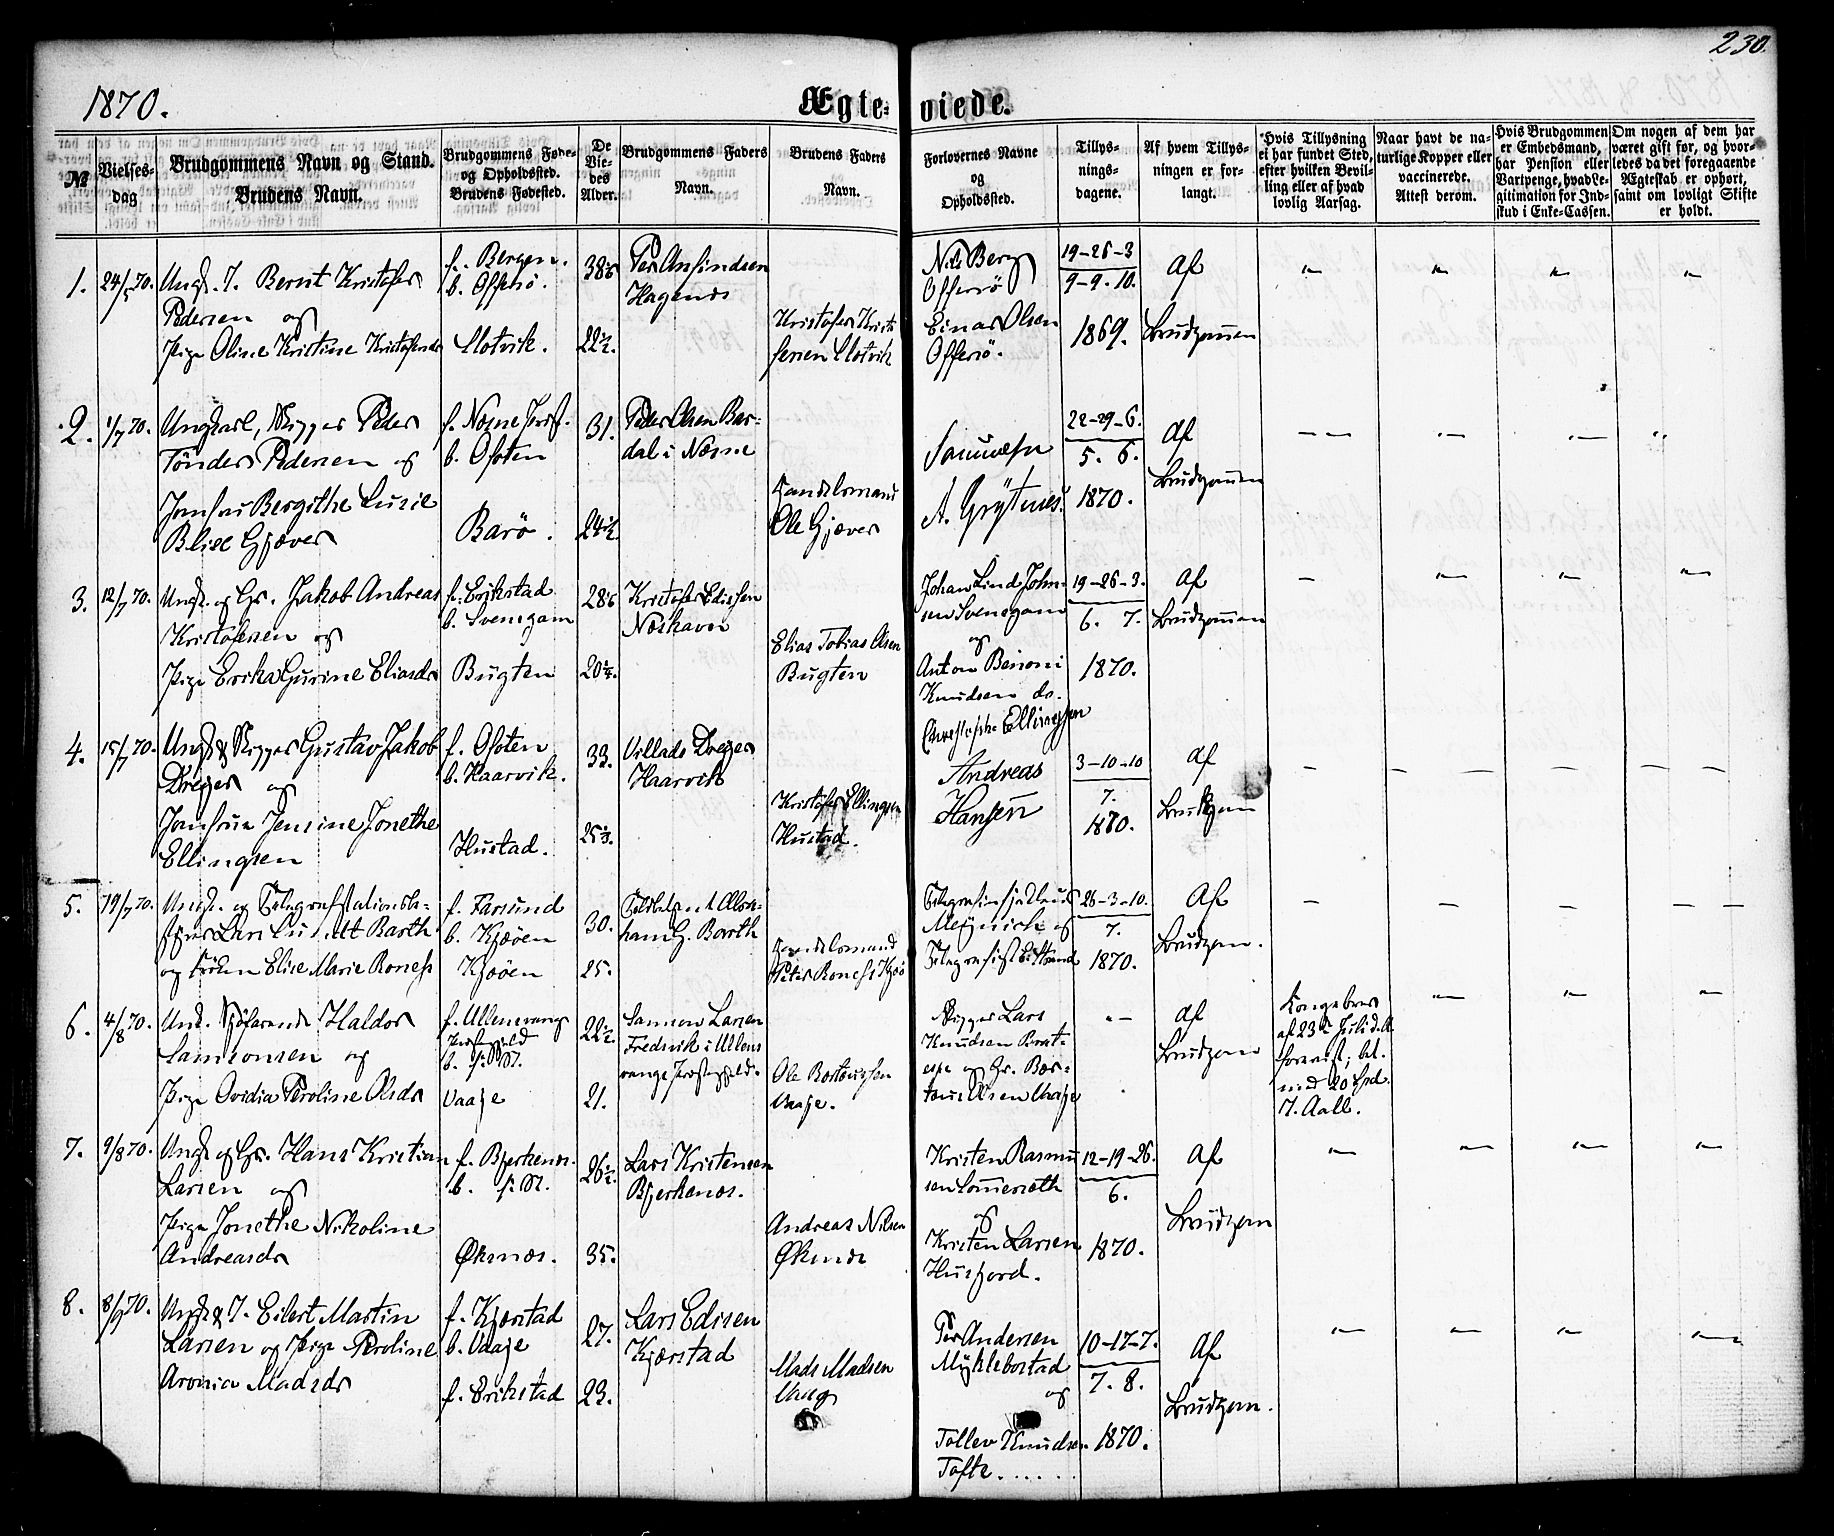 230.
1870.
Ægte- viede.
№
Vielses-
dag
Brudgommens Navn og Stand.
Brudens Navn.
Brudgommens Føde-
og Opholdssted.
Brudens Fødested.
De
Vie-
des
Alder.
Brudgommens Faders
Navn.
Brudens Faders
Navn.
Forlovernes Navne
og
Opholdssted.
Tillys-
nings-
dagene.
Af hvem Tillys-
ningen er for-
langt.
Hvis Tillysning
ei har fundet Sted,
efter hvilken Bevil-
ling eller af hvad
lovlig Aarsag.
Naar havt de na-
turlige Kopper eller
vaccinerede.
Attest derom.
Hvis Brudgommen
er Embedsmand,
har Pension eller
Vartpenge, hvad Le-
gitimation for Ind-
skud i Enke-Cassen.
Om nogen af dem har
været gift før, og hvor-
ledes da det foregaaende
Ægteskab er ophørt,
samt om lovligt Skifte
er holdt.
1. 24/5 70.
Ungk. I. Bernt Kristofer
Pedersen og
Pige Oline Kristine Kristofersd
f. Bergen.
b. Offersö.
Slotvik.
22½.
Per Anfindsen
Hagenes
Kristofer Krist
fersen Slotvik
Nils Berg
Offersö
Einar Olsen
Offersö.
19-26-3
9-9.10.
1869.
Af
Brudgommen
2. 1/7 70.
Ungkarl, Skipper Peder
Tönder Pedersen og
Jomfru Bergithe Lusie
Blixe Gjæver
f. Nesne Prstg.
b. Ofoten
Barö.
31.
24½
Peder Olsen Bar-
dal i Næsne
Handelsmand
Ole Gjæver
A. Grÿtnes.
22-29-6.
5. 6.
1870.
Af
Brudgommen
3. 12/7 70.
Ungk. og Gr. Jakob Andreas
Kristofersen og
Pige Erika Gurine Eliasdr
f. Erikstad
b. Svensgam
Bugten
Kristofer Edissen
Næshavn
Elias Tobias Olsen
Bugten
Johan Lind John-
sen Svensgam
og
Anton Benoni
Knudsen do.
19-26-3.
6. 7.
1870.
Af
Brudgommen
4. 15/7 70.
Ungk & Skipper Gustav Jakob
Dreyer og
Jomfrue Jensine Jonethe
Ellingsen
f. Ofoten
b. Haarvik.
Hustad.
33.
Villads Dreyer
Haarvik
Kristofer Ellingsen
Hustad.
Christopher Ellingsen
Andreas
Hansen
3-10-10
7.
1870.
Af
Brudgom
5. 19/7 70.
Ungk. og Telegrafstationsbe-
styrer Lars Barth
og Frøken Elise Marie Roness
f. Farsund
b. Kjöøen
Kjöøen
30.
25.
Abra-
ham G. Barth
Handelsmand
Peter Roness Kjeö
Meÿnich og
Telegrafist
26-3-10.
7.
1870.
Af
Brudgom.
6. 4/8 70.
Ungk. Sjöfarende Haldor
Samsonsen og
Pige Ovidia Peroline Olsdr
f. Ullensvang
Præstegjeld
b. s. St.
Vaaje
22½.
21.
Samson Larsen
Fredsvik i Ullens
vangs Præstegjeld.
Ole Bortinussen
Vaaje.
Skipper Lars
Knudsen
og Gr.
Olsen Vaaje
Af
Brudgom
Kongebrev
af 23de Juli d. A.
forevist; bet.
med 20 Spd.
N. Aall.
7. 9/8 70.
Ungk og Gr. Hans Kristian
Larsen og
Pige Jonethe Nikoline
Andreasdr
f. Bjerkenes.
b. s. St.
Øksnes.
26½.
35.
Lars Kristensen
Bjerkenes.
Andreas Nilsen
Øksnes
Kristen Rasmus
sen Sommersæth
og
Kristen Larsen
Husjord.
12-19-26.
6.
1870.
Af
Brudgom
8. 8/9 70.
Ungk & I. Eilert Martin
Larsen og Pige Peroline
Aronia Madsdr
f. Kjærstad
b. Vaaje
f. Erikstad
27.
23.
Lars Edisen
Kjærstad
Mads Madsen
Vaag
Per Andersen
Mÿklebostad
og
Tollev Knudsen
Tofte......
10-17-7.
7. 8.
1870.
Af
Brudgom.